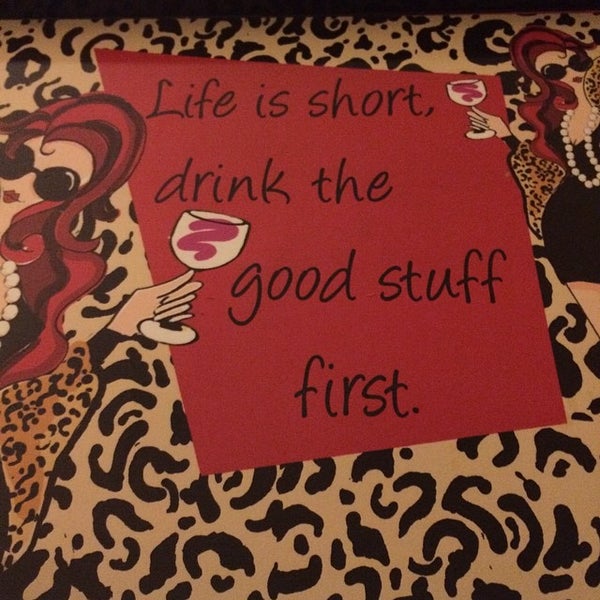 Life is short,
drink the
good stuff
first.